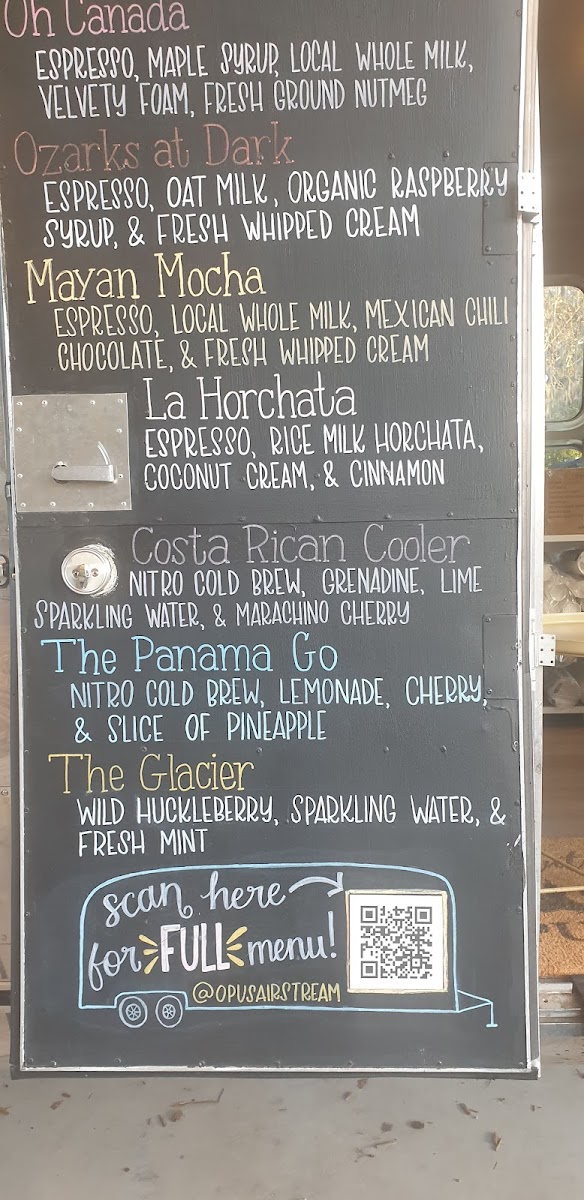 Oh Canada
ESPRESSO, MAPLE SYRUP, LOCAL WHOLE MILK,
VELVETY FOAM, FRESH GROUND NUTMEG
Ozarks at Dark
ESPRESSO, OAT MILK, ORGANIC RASPBERRY
SYRUP, & FRESH WHIPPED CREAM
Mayan Mocha
ESPRESSO, LOCAL WHOLE MILK, MEXICAN CHILI
CHOCOLATE, & FRESH WHIPPED CREAM
La Horchata
ESPRESSO, RICE MILK HORCHATA,
COCONUT CREAM, & CINNAMON
Costa Rican Cooler
NITRO COLD BREW, GRENADINE, LIME
SPARKLING WATER, & MARACHINO CHERRY
The Panama Go
NITRO COLD BREW, LEMONADE, CHERRY,
& SLICE OF PINEAPPLE
The Glacier
WILD HUCKLEBERRY, SPARKLING WATER, &
FRESH MINT
scan here
for FULL menu!
@OPUSAIRSTREAM